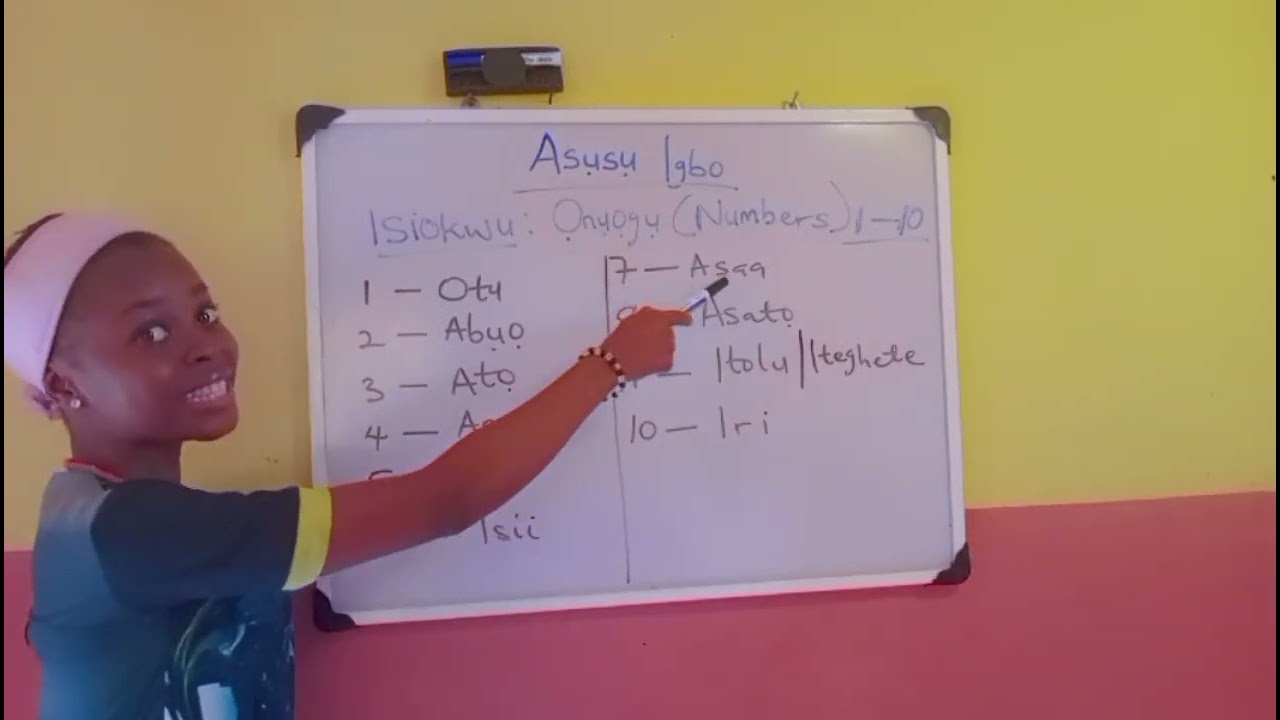 Asụsụ Igbo
Isiokwu: Ọnụọgụ (Numbers) 1-10
1 — Otu
2 — Abụọ
3 — Atọ
4 —
Isii
7 — Asaa
Asatọ
— Itolu/Iteghete
10 — Iri